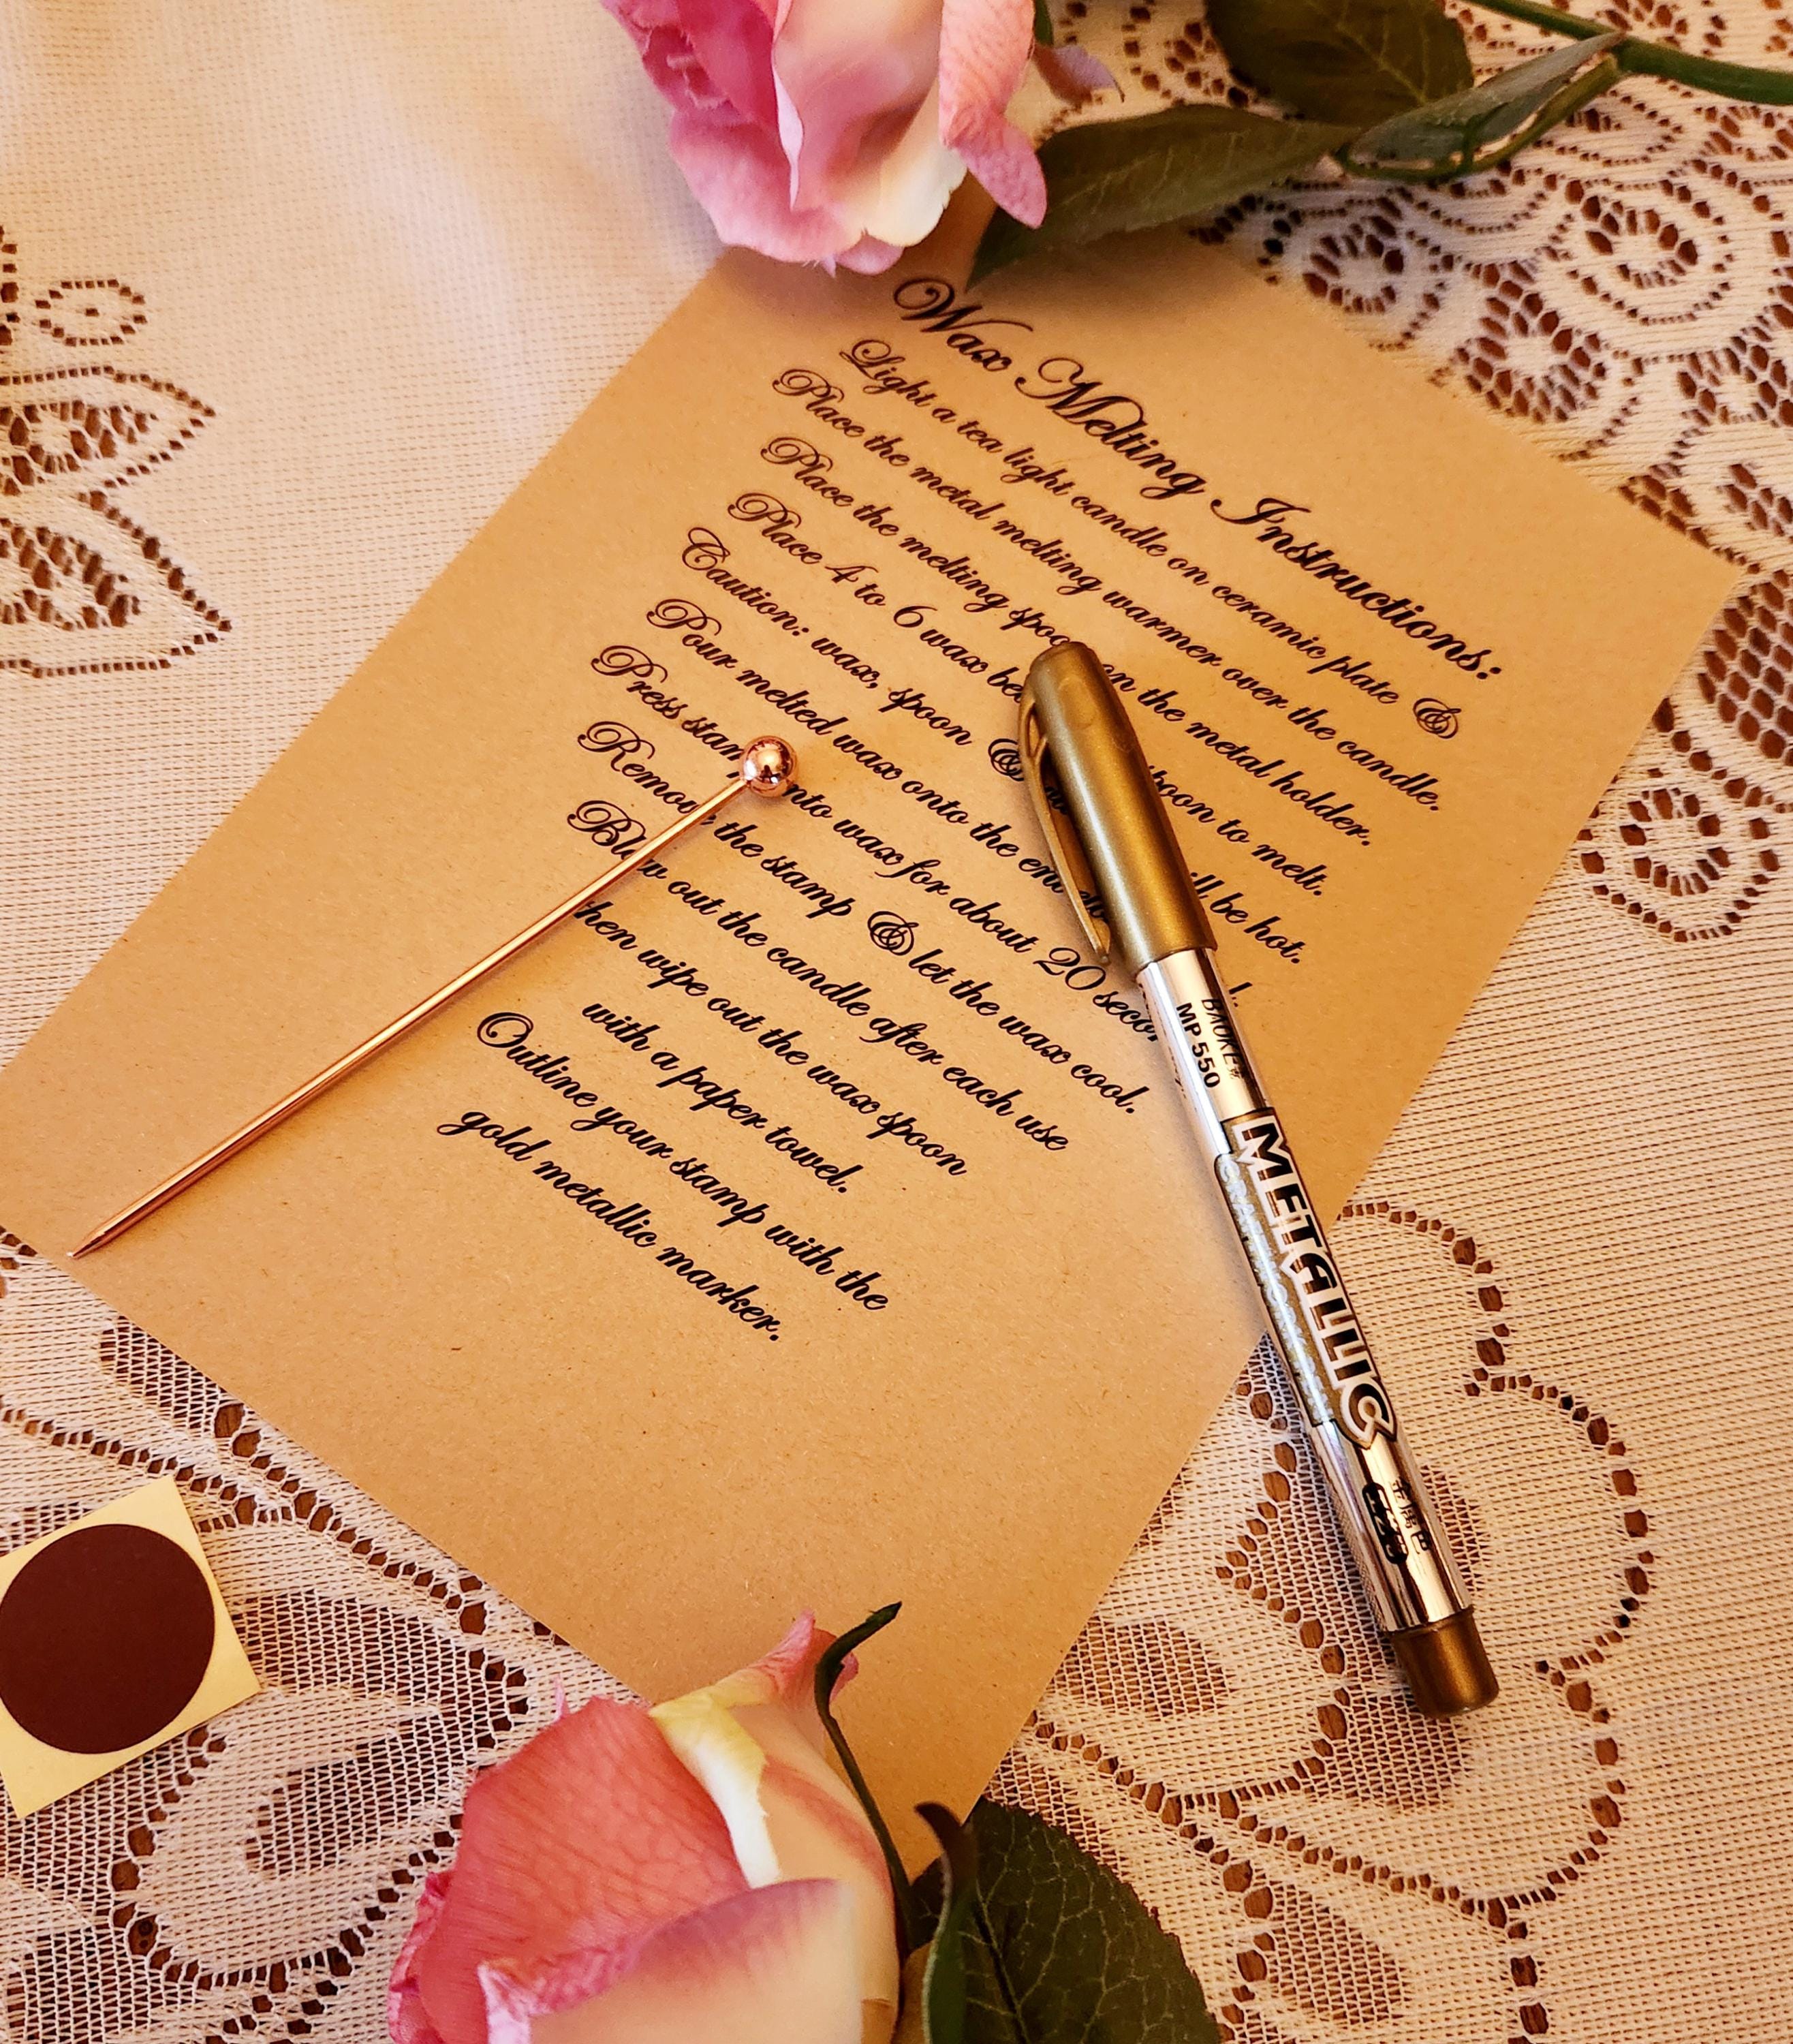 Wax Melting Instructions:
Light a tea light candle on ceramic plate &
Place the metal melting warmer over the candle.
Place the melting spoon on the metal holder.
Place 4 to 6 wax spoon to melt.
Caution: wax, spoon & will be hot.
Pour melted wax onto the
Press stamp into wax for about 20
Remove the stamp & let the wax cool.
Blow out the candle after each use
then wipe out the wax spoon
with a paper towel.
Outline your stamp with the
gold metallic marker.
BAOKE
MP 550
METALLIC